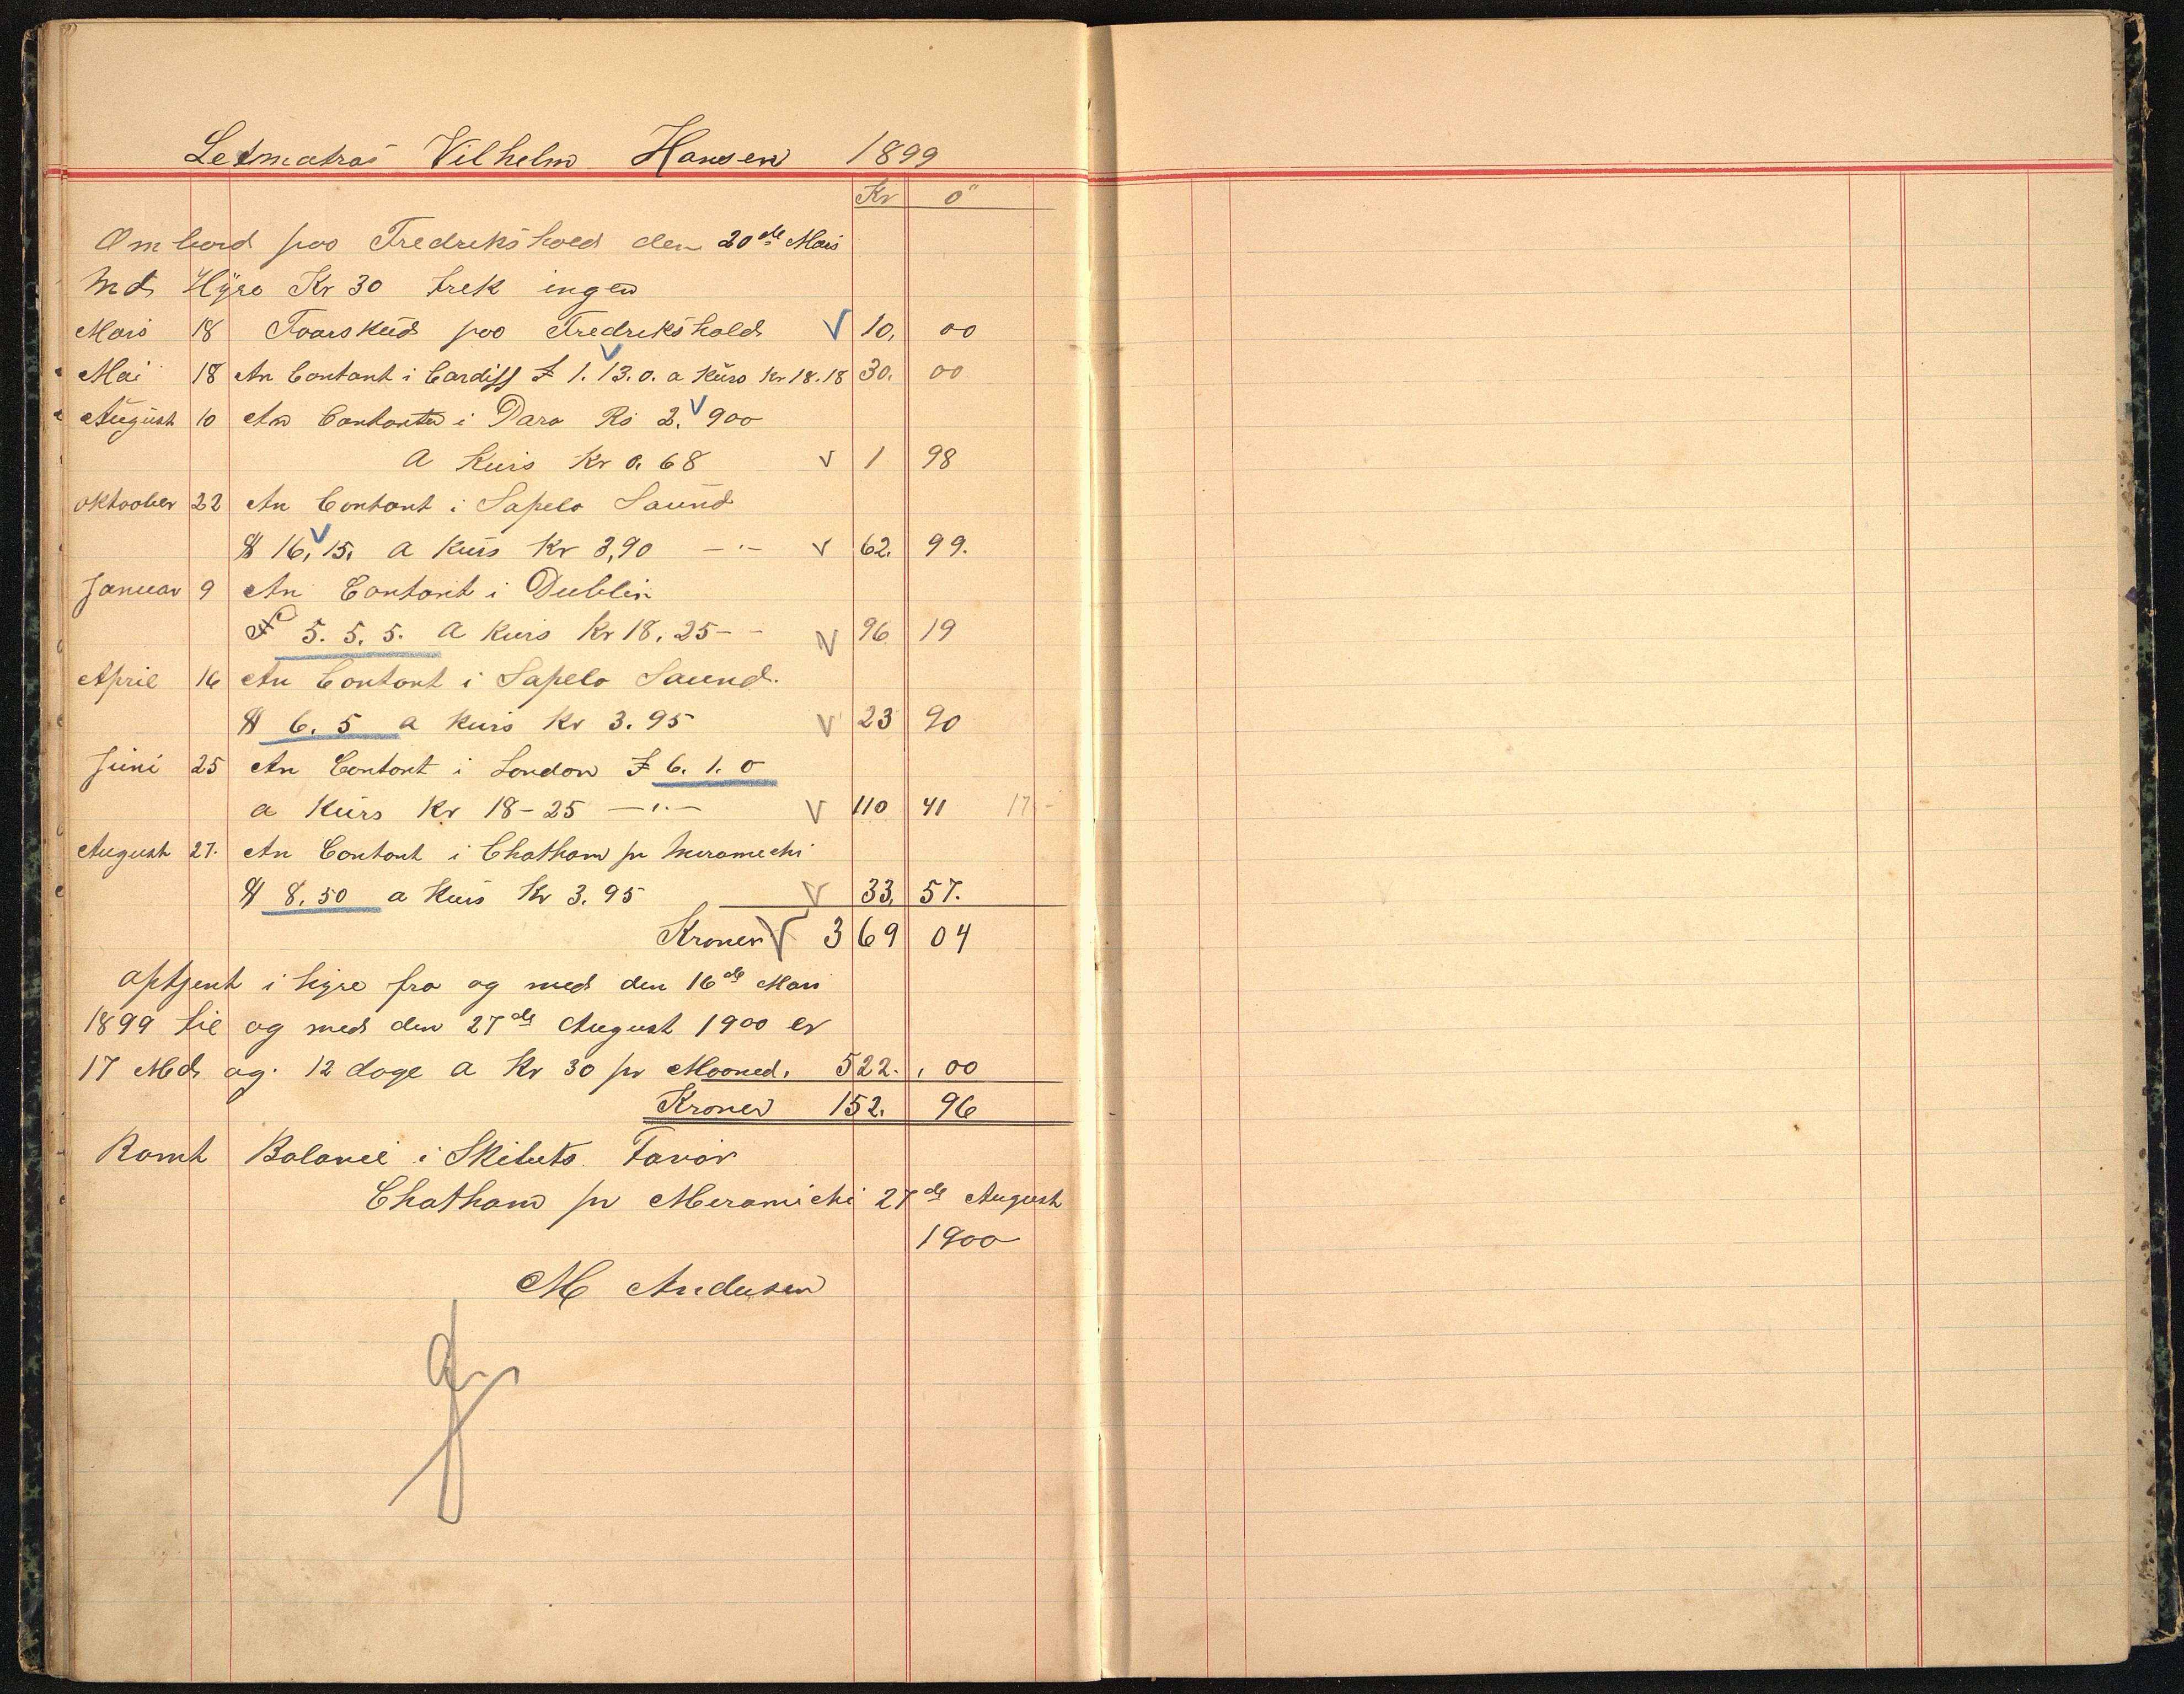 Letmatros Vilhelm Hansen 1899
Kr ö
Ombord paa Fredrekshald den 20de Mars
Md Hÿre Kr 30 trek ingen
Mars 18 Foorskud paa Fredrekshald 10, 00
Mai 18 An Contant i Cardiff £ 1. 13. 0. a Kurs Kr 18.18 30. 00
August 10 An Contante i Para Rs 2. 900
a Kurs Kr 0. 68 1 98
Oktoober 22 An Contant i Sapelo Saund
$ 16, 15, a Kurs Kr 3,90 62. 99.
Januar 9 An Contant i Dublin
5. 5. 5. a Kurs Kr 18. 25 - - 96 19
April 16 An Contant i Sapelo Saund.
$ 6. 5 a Kurs Kr 3. 95 23 90
Juni 25 An Contant i London £ 6. 1. 0
a Kurs Kr 18-25 110 41 17-
August 27. An Contant i Chatham pr Meramechi
$ 8. 50 a Kurs Kr 3. 95 33, 57.
Kroner 369 04
Optjent i hyre fra og med den 16de Mars
1899 til og med den 27de August 1900 er
17 Md og. 12 dage a Kr 30 pr Mooned. 522. 00
Kroner 152. 96
Balance i Skibets Favör
Chatham pr Meramichi 27de August
1900
M Andersen